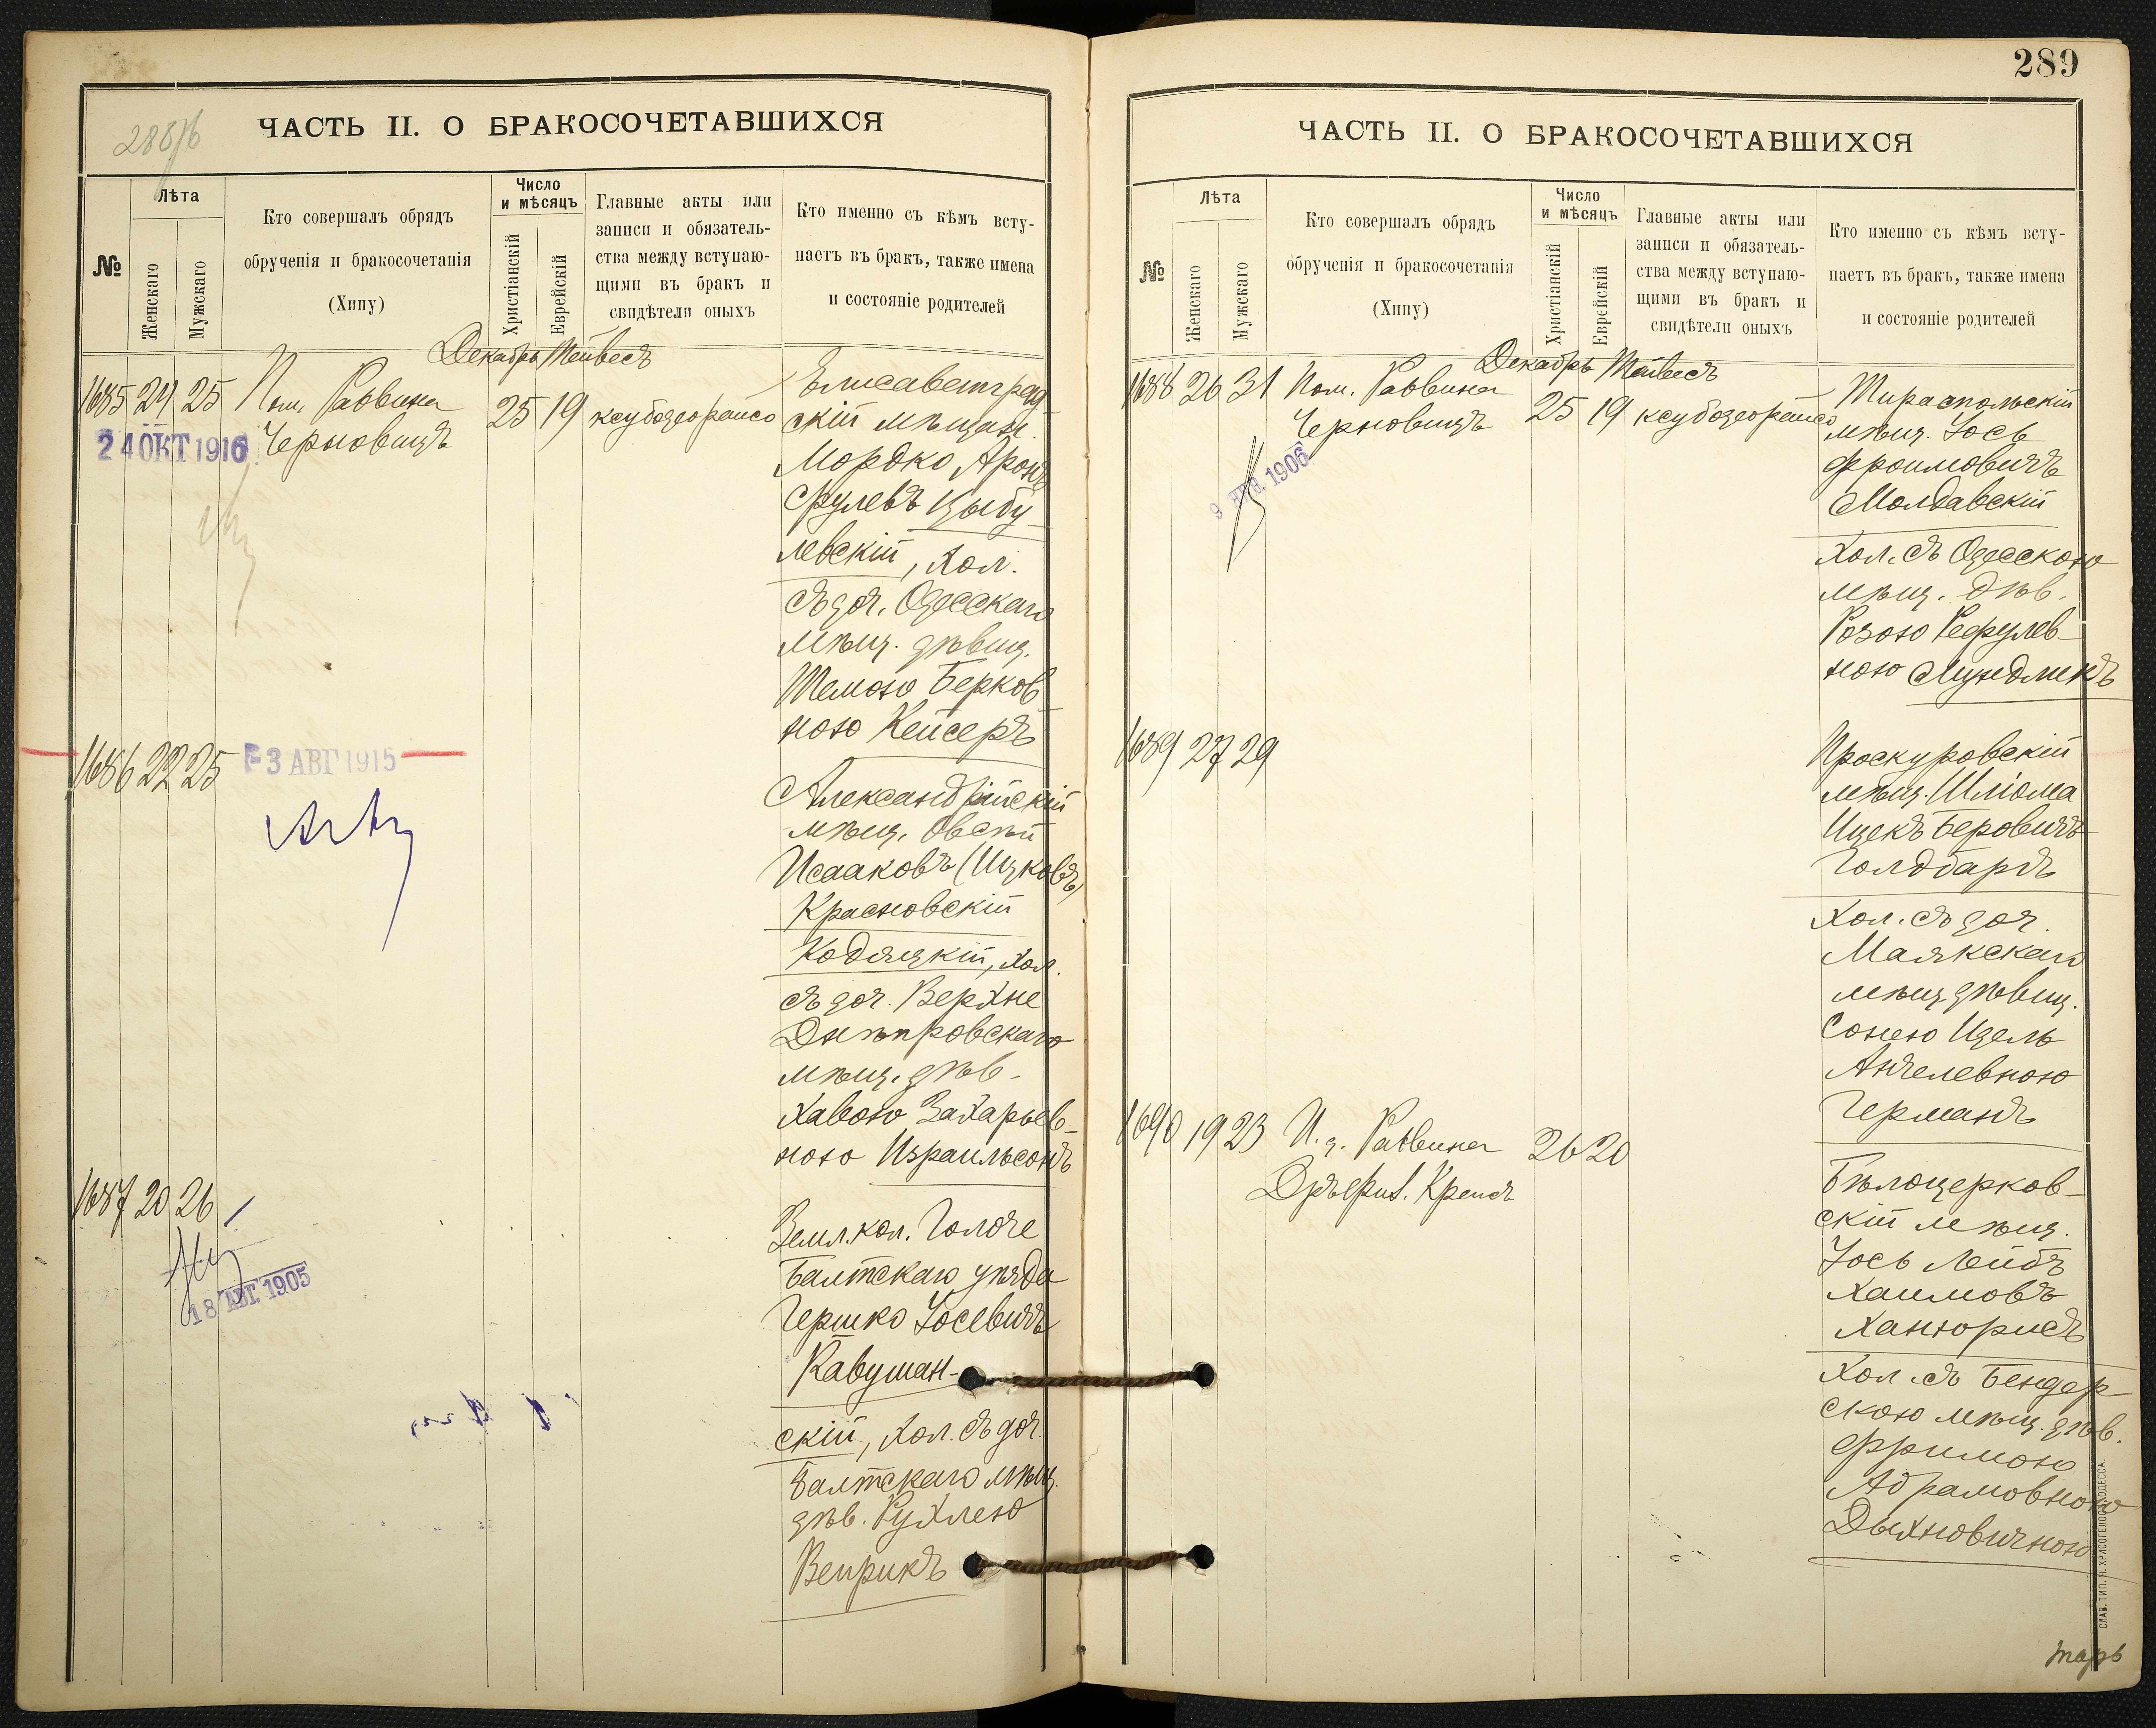 288/б
ЧАСТЬ II. О БРАКОСОЧЕТАВШИХСЯ
№
Лѣта
Женскаго
Мужскаго
Кто совершалъ обрядъ
обрученія и бракосочетанія
(Хипу)
Число
и мѣсяцъ
Христіанскій
Еврейскій
Главные акты или
записи и обязатель-
ства между вступаю-
щими въ бракъ и
свидѣтели оныхъ
Кто именно съ кѣмъ всту-
паетъ въ бракъ, также имена
и состояніе родителей
Декабрь Тейвесъ
1685 24 25 Пом. Раввина
Черновицъ
25 19
24 ОКТ 1916
Елисаветград
скій мѣщан.
Мордко Аронъ
Срулевъ Цыбу-
левскій, хол.
съ доч. Одесскаго
мѣщ. дѣвиц.
Шемою Берков
ною Кейсеръ
1686 22 25
-3 АВГ 1915
Александрійскій
мѣщ. Овсѣй
Исааковъ (Ицковъ)
Красновскій
Кодяцкій, хол.
съ доч. Верхне
Днѣпровскаго
мѣщ. дѣв.
Хавою Захарьев-
ною Израильсонъ
1687 20 26
18 АВГ. 1905
Земл. кол. Голоче
Балтскаго уѣзда
Гершко Іосевичъ
Кавушан-
скій, хол. съ доч.
Балтскаго мѣщ.
дѣв. Рухлею
Веприкъ
289
ЧАСТЬ II. О БРАКОСОЧЕТАВШИХСЯ
№
Лѣта
Женскаго
Мужскаго
Кто совершалъ обрядъ
обрученія и бракосочетанія
(Хипу)
Число
и мѣсяцъ
Христіанскій
Еврейскій
Главные акты или
записи и обязатель-
ства между вступаю-
щими въ бракъ и
свидѣтели оныхъ
Кто именно съ кѣмъ всту-
паетъ въ бракъ, также имена
и состояніе родителей
Декабрь Тейвесъ
1688 26 31 Пом. Раввина
Черновицъ
25 19
1906
Тираспольскій
мѣщ. Іось
Фроимовичъ
Молдавскій
Хол. съ Одесскою
мѣщ. дѣв.
Розою Рефулев-
ною Мундликъ
1689 27 29
Проскуровскій
мѣщ. Шліома
Ицекъ Беровичъ
Голдбартъ
Хол. съ доч.
Маякскаго
мѣщ. дѣвиц.
Сонею Идель
Анчелевною
Германъ
1690 19 23 И. д. Раввина
Крепсъ
26 20
Бѣлоцерков-
скій мѣщ.
Іось Лейбъ
Хаимовъ
Ханюрисъ
Хол. съ Бендер-
скою мѣщ. дѣв.
Фримою
Абрамовною
Дыхновичною
СЛАВ. ТИП. Н. ХРИСОГЕЛОСЪ ОДЕССА.
тарь